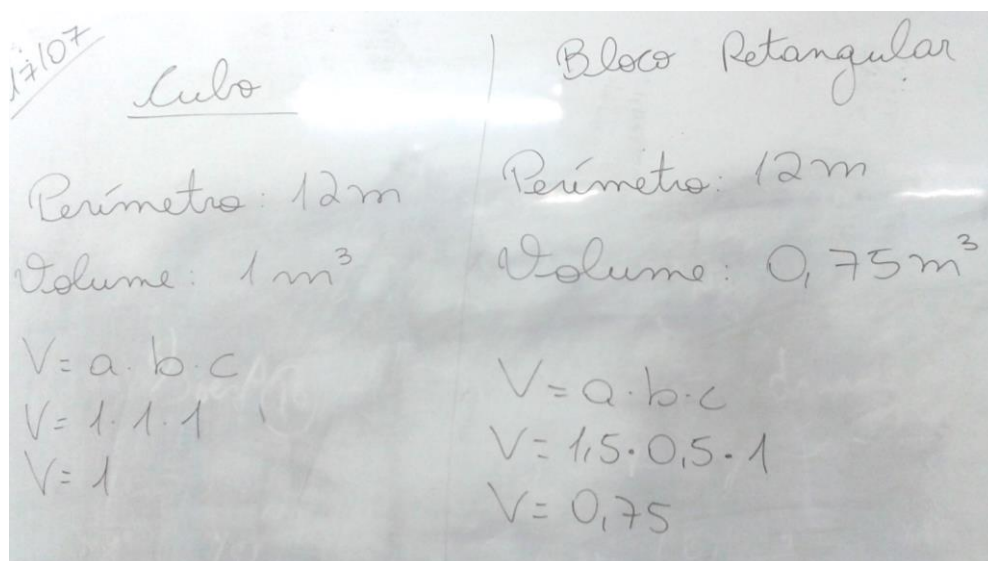 17/07
Cubo
Perímetro: 12m
Volume: 1m³
V= a·b·c
V= 1·1·1
V= 1
Bloco Retangular
Perímetro: 12m
Volume: 0,75m³
V= a·b·c
V= 1,5·0,5·1
V= 0,75